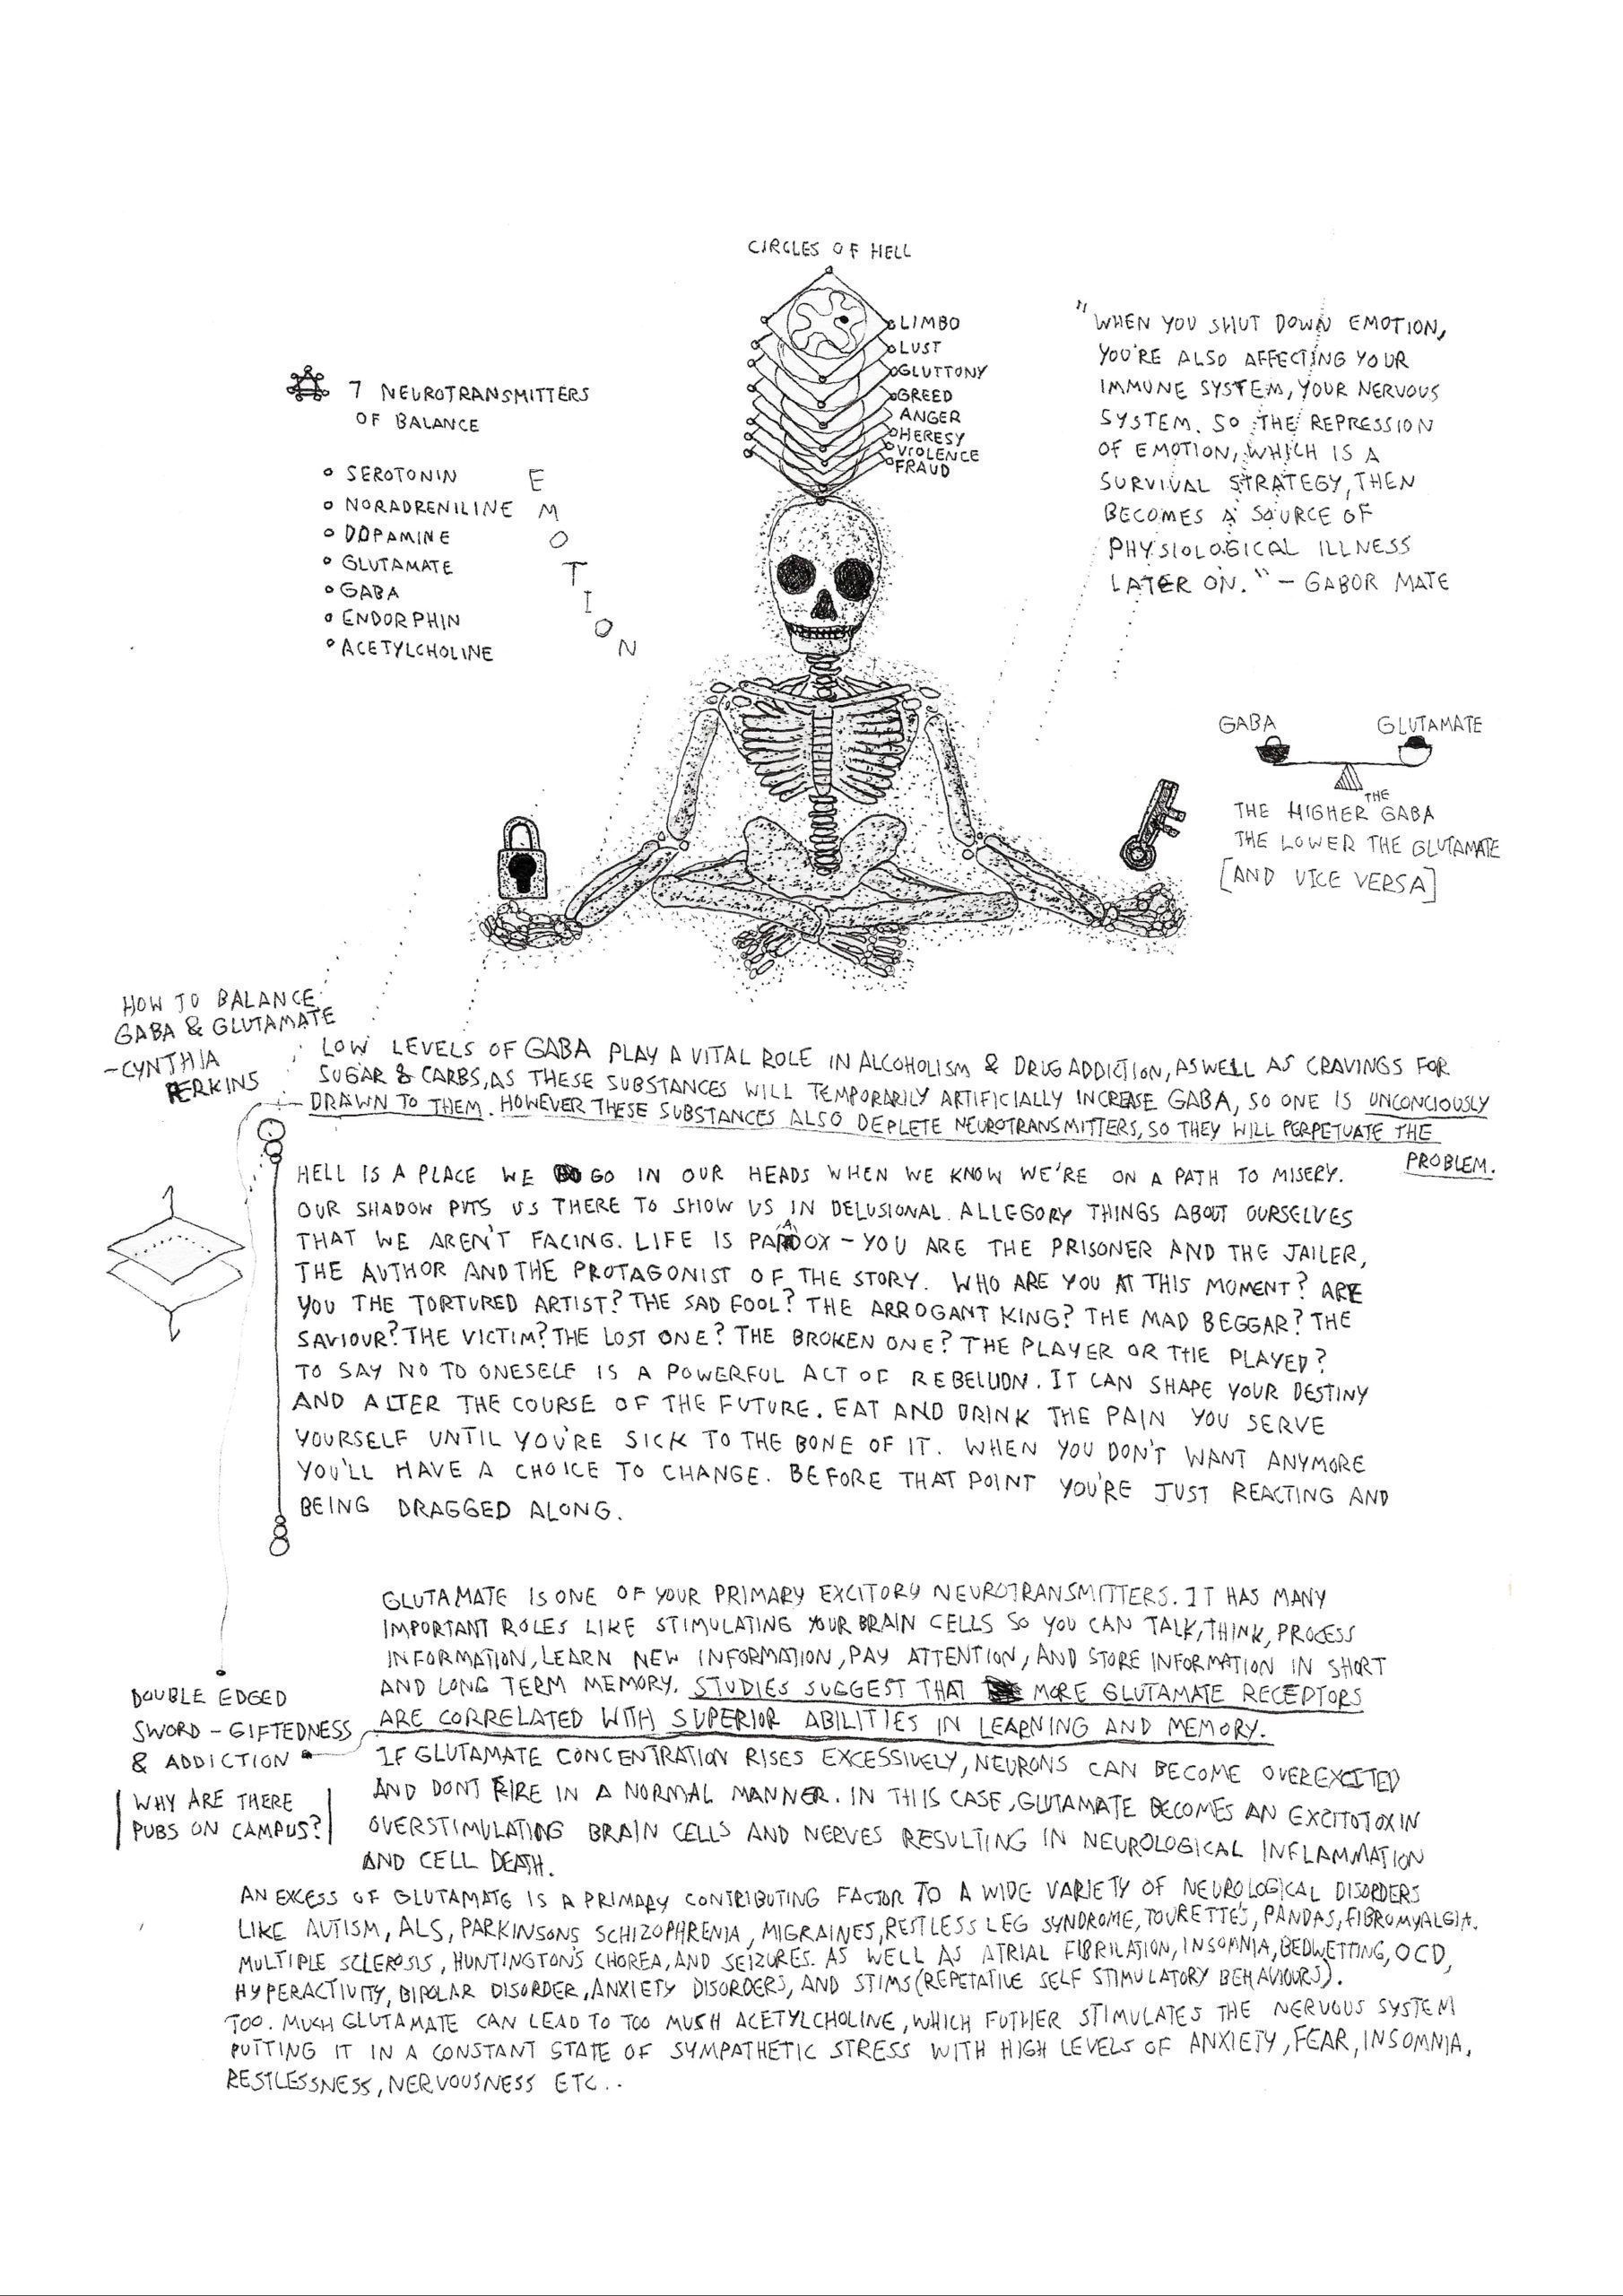 CIRCLES OF HELL
LIMBO
LUST
GLUTTONY
GREED
ANGER
HERESY
VIOLENCE
FRAUD
7 NEUROTRANSMITTERS
OF BALANCE
SEROTONIN
NORADRENILINE
DOPAMINE
GLUTAMATE
GABA
ENDORPHIN
ACETYLCHOLINE
EMOTION
"WHEN YOU SHUT DOWN EMOTION,
YOU'RE ALSO AFFECTING YOUR
IMMUNE SYSTEM, YOUR NERVOUS
SYSTEM. SO THE REPRESSION
OF EMOTION, WHICH IS A
SURVIVAL STRATEGY, THEN
BECOMES A SOURCE OF
PHYSIOLOGICAL ILLNESS
LATER ON." - GABOR MATE
GABA GLUTAMATE
THE HIGHER THE GABA
THE LOWER THE GLUTAMATE
[AND VICE VERSA]
HOW TO BALANCE
GABA & GLUTAMATE
- CYNTHIA
PERKINS
LOW LEVELS OF GABA PLAY A VITAL ROLE IN ALCOHOLISM & DRUG ADDICTION, ASWELL AS CRAVINGS FOR
SUGAR & CARBS, AS THESE SUBSTANCES WILL TEMPORARILY ARTIFICIALLY INCREASE GABA, SO ONE IS UNCONCIOUSLY
DRAWN TO THEM. HOWEVER THESE SUBSTANCES ALSO DEPLETE NEUROTRANSMITTERS, SO THEY WILL PERPETUATE THE
PROBLEM.
HELL IS A PLACE WE GO IN OUR HEADS WHEN WE KNOW WE'RE ON A PATH TO MISERY.
OUR SHADOW PUTS US THERE TO SHOW US IN DELUSIONAL ALLEGORY THINGS ABOUT OURSELVES
THAT WE AREN'T FACING. LIFE IS PARADOX - YOU ARE THE PRISONER AND THE JAILER,
THE AUTHOR AND THE PROTAGONIST OF THE STORY. WHO ARE YOU AT THIS MOMENT? ARE
YOU THE TORTURED ARTIST? THE SAD FOOL? THE ARROGANT KING? THE MAD BEGGAR? THE
SAVIOUR? THE VICTIM? THE LOST ONE? THE BROKEN ONE? THE PLAYER OR THE PLAYED?
TO SAY NO TO ONESELF IS A POWERFUL ACT OF REBELLION. IT CAN SHAPE YOUR DESTINY
AND ALTER THE COURSE OF THE FUTURE. EAT AND DRINK THE PAIN YOU SERVE
YOURSELF UNTIL YOU'RE SICK TO THE BONE OF IT. WHEN YOU DON'T WANT ANYMORE
YOU'LL HAVE A CHOICE TO CHANGE. BEFORE THAT POINT YOU'RE JUST REACTING AND
BEING DRAGGED ALONG.
GLUTAMATE IS ONE OF YOUR PRIMARY EXCITORY NEUROTRANSMITTERS. IT HAS MANY
IMPORTANT ROLES LIKE STIMULATING YOUR BRAIN CELLS SO YOU CAN TALK, THINK, PROCESS
INFORMATION, LEARN NEW INFORMATION, PAY ATTENTION, AND STORE INFORMATION IN SHORT
AND LONG TERM MEMORY. STUDIES SUGGEST THAT MORE GLUTAMATE RECEPTORS
ARE CORRELATED WITH SUPERIOR ABILITIES IN LEARNING AND MEMORY.
IF GLUTAMATE CONCENTRATION RISES EXCESSIVELY, NEURONS CAN BECOME OVEREXCITED
AND DONT FIRE IN A NORMAL MANNER. IN THIS CASE, GLUTAMATE BECOMES AN EXCITOTOXIN
OVERSTIMULATING BRAIN CELLS AND NERVES RESULTING IN NEUROLOGICAL INFLAMMATION
AND CELL DEATH.
DOUBLE EDGED
SWORD - GIFTEDNESS
& ADDICTION
WHY ARE THERE
PUBS ON CAMPUS?
AN EXCESS OF GLUTAMATE IS A PRIMARY CONTRIBUTING FACTOR TO A WIDE VARIETY OF NEUROLOGICAL DISORDERS
LIKE AUTISM, ALS, PARKINSONS SCHIZOPHRENIA, MIGRAINES, RESTLESS LEG SYNDROME, TOURETTE'S, PANDAS, FIBROMYALGIA.
MULTIPLE SCLEROSIS, HUNTINGTON'S CHOREA, AND SEIZURES. AS WELL AS ATRIAL FIBRILATION, INSOMNIA, BEDWETTING, OCD,
HYPERACTIVITY, BIPOLAR DISORDER, ANXIETY DISORDERS, AND STIMS (REPETATIVE SELF STIMULATORY BEHAVIOURS).
TOO. MUCH GLUTAMATE CAN LEAD TO TOO MUSH ACETYLCHOLINE, WHICH FUTHER STIMULATES THE NERVOUS SYSTEM
PUTTING IT IN A CONSTANT STATE OF SYMPATHETIC STRESS WITH HIGH LEVELS OF ANXIETY, FEAR, INSOMNIA,
RESTLESSNESS, NERVOUSNESS ETC..